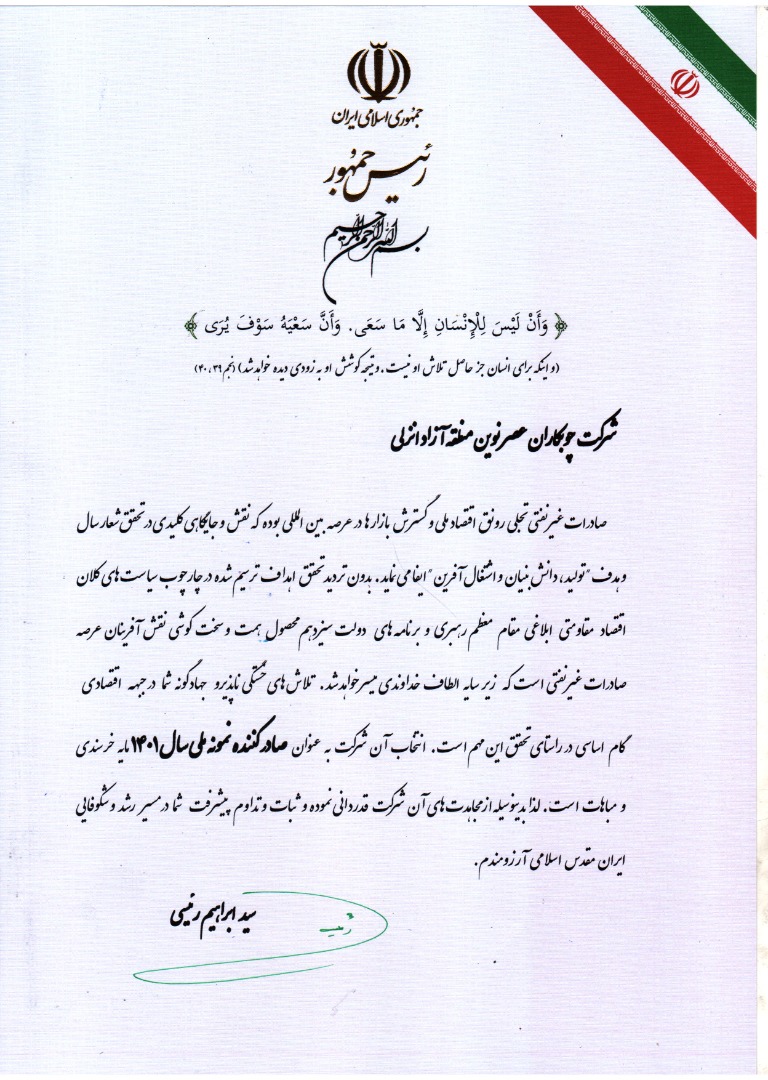 جمهوری اسلامی ایران
رئیس جمهور
بسم الله الرحمن الرحیم
﴿ وَأَنْ لَيْسَ لِلْإِنْسَانِ إِلَّا مَا سَعَى. وَأَنَّ سَعْيَهُ سَوْفَ يُرَى ﴾
(و اینکه برای انسان جز حاصل تلاش او نیست. و نتیجه کوشش او به زودی دیده خواهد شد) (نجم ۳۹، ۴۰)
شرکت چوبکاران عصر نوین منطقه آزاد انزلی
صادرات غیرنفتی تجلی رونق اقتصاد ملی و گسترش بازارها در عرصه بین المللی بوده که نقش و جایگاهی کلیدی در تحقق شعار سال
و هدف "تولید، دانش بنیان و اشتغال آفرین" ایفا می نماید. بدون تردید تحقق اهداف ترسیم شده در چارچوب سیاست های کلان
اقتصاد مقاومتی ابلاغی مقام معظم رهبری و برنامه های دولت سیزدهم محصول همت و سخت کوشی نقش آفرینان عرصه
صادرات غیرنفتی است که زیر سایه الطاف خداوندی میسر خواهد شد. تلاش های خستگی ناپذیر و جهادگونه شما در جبهه اقتصادی
گام اساسی در راستای تحقق این مهم است. انتخاب آن شرکت به عنوان صادرکننده نمونه ملی سال ۱۴۰۱ مایه خرسندی
و مباهات است. لذا بدینوسیله از مجاهدت های آن شرکت قدردانی نموده و ثبات و تداوم پیشرفت شما در مسیر رشد و شکوفایی
ایران مقدس اسلامی آرزومندم.
سید ابراهیم رئیسی